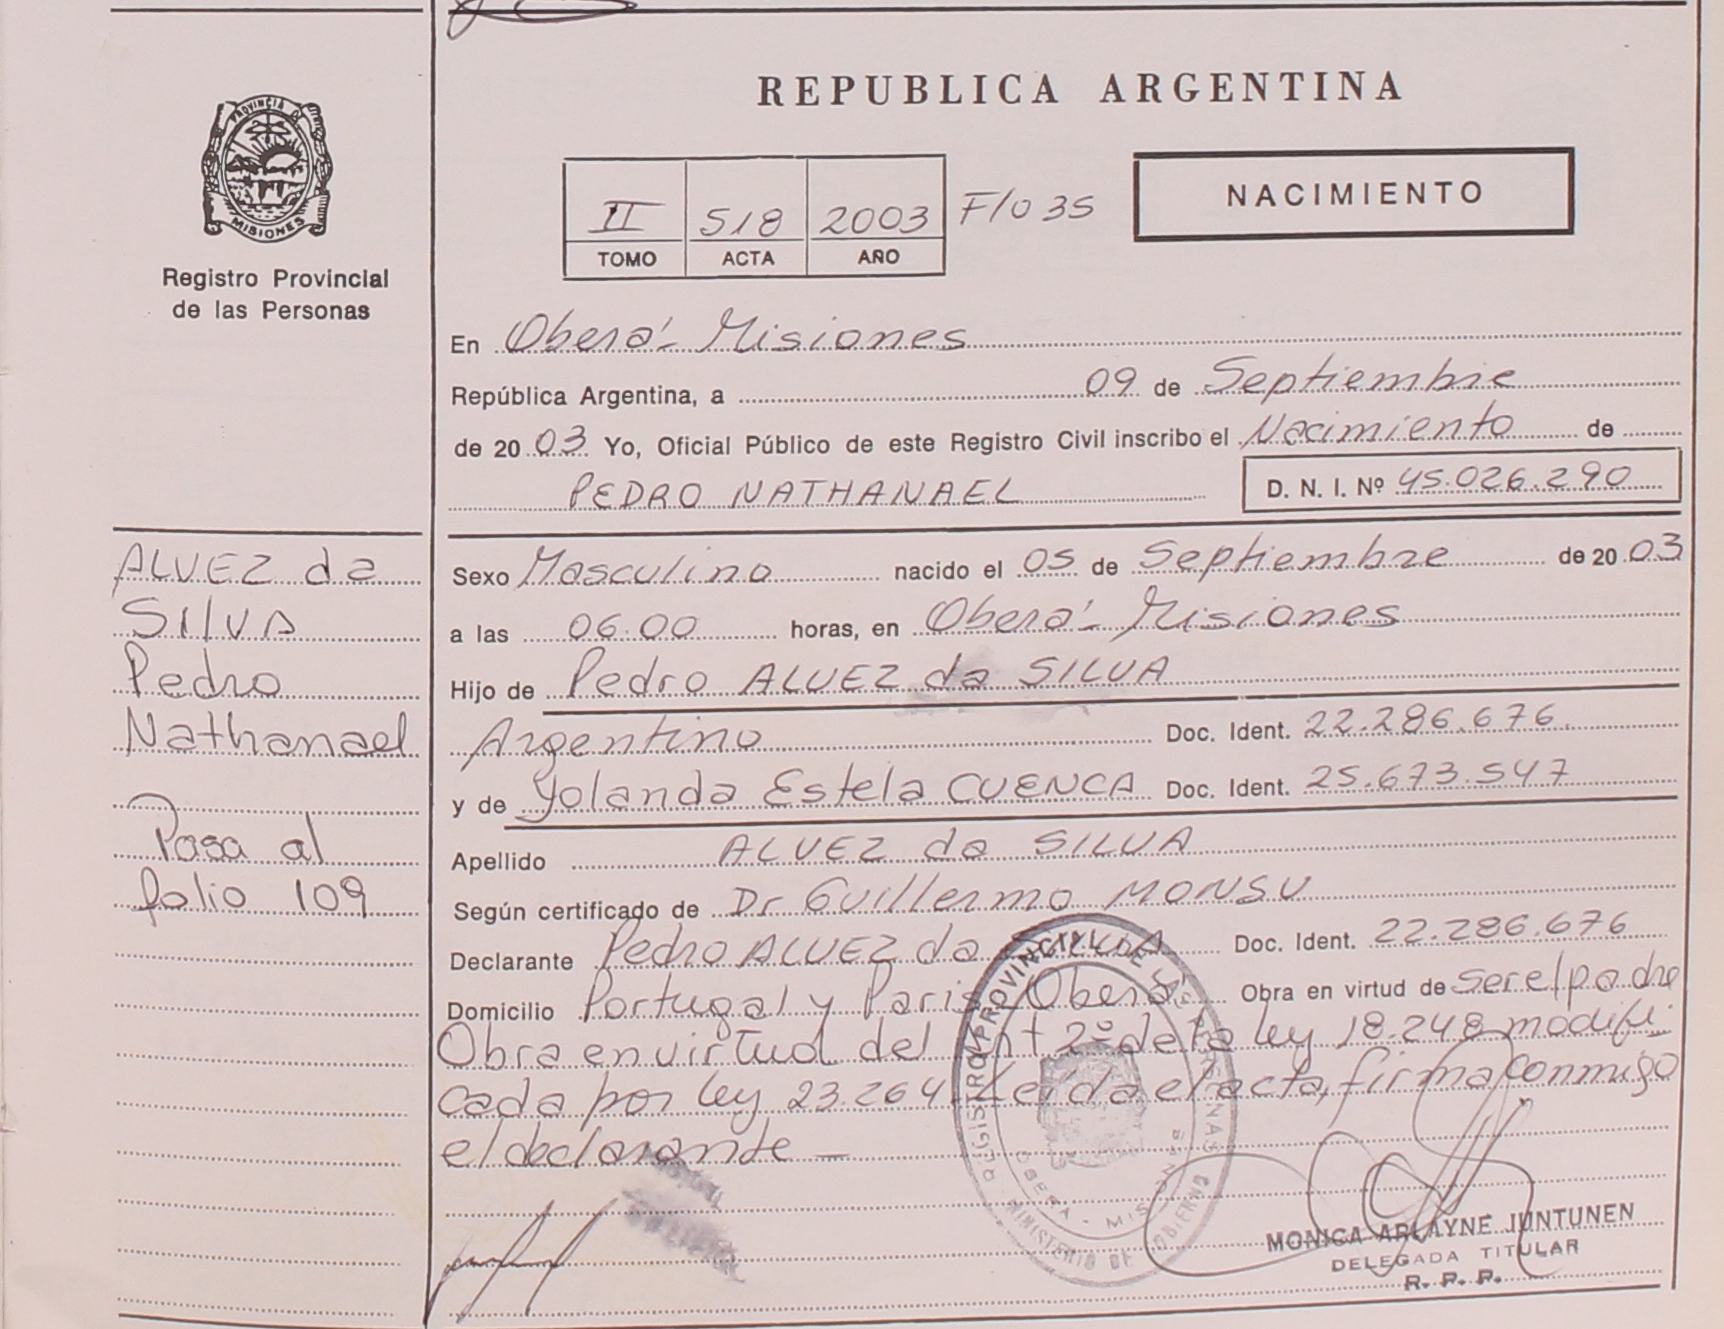 PROVINCIA DE
MISIONES
Registro Provincial
de las Personas
REPUBLICA ARGENTINA
II 518 2003 F/035
TOMO ACTA AÑO
NACIMIENTO
En Oberá - Misiones
República Argentina, a 09 de Septiembre
de 2003 Yo, Oficial Público de este Registro Civil inscribo el Nacimiento de
PEDRO NATHANAEL D. N. I. Nº 45.026.290
ALVEZ da
SIlVA
Pedro
Nathanael
Pasa al
folio 109
Sexo Masculino nacido el 05 de Septiembre de 2003
a las 06.00 horas, en Oberá - Misiones
Hijo de Pedro ALVEZ da SILVA
Argentino Doc. Ident. 22.286.676
y de Yolanda Estela CUENCA Doc. Ident. 25.673.547
Apellido ALVEZ da SILVA
Según certificado de Dr Guillermo MONSU
Declarante Pedro ALVEZ da SILVA Doc. Ident. 22.286.676
Domicilio Portugal y Paris Oberá Obra en virtud de ser el padre
Obra en virtud del Art 2º de la ley 18.248 modifi
cada por ley 23.264 Leída el acta, firma conmigo
el declarante —
REGISTRO PROVINCIAL DE LAS PERSONAS
OBERA - MISIONES
MINISTERIO DE GOBIERNO
MONICA ARLAYNE JUNTUNEN
DELEGADA TITULAR
R. P. P.